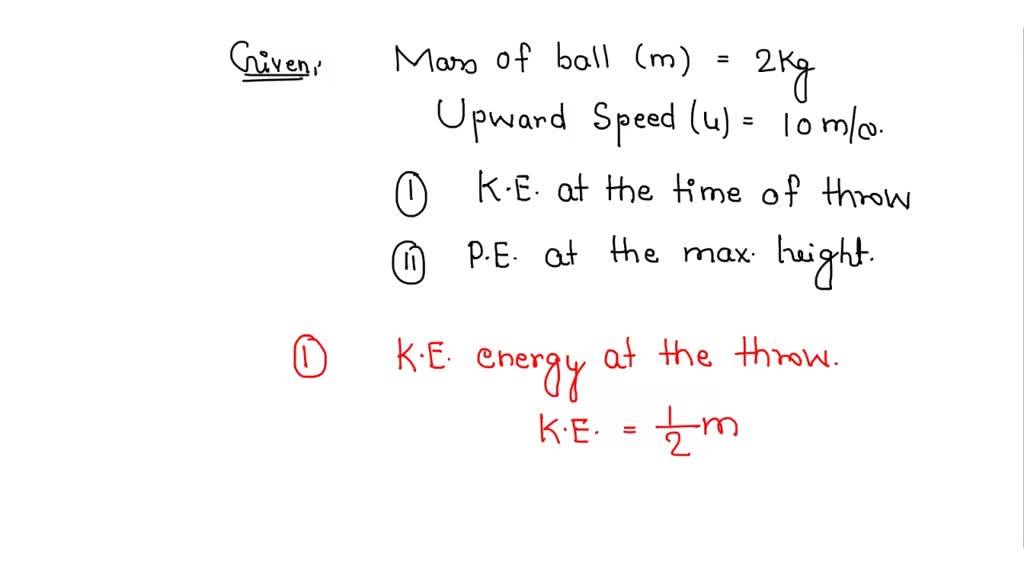 Given, Mass of ball (m) = 2Kg
Upward Speed (u) = 10 m/s.
(i) K.E. at the time of throw
(ii) P.E. at the max. height.
(i) K.E. energy at the throw.
K.E. = 1/2 m